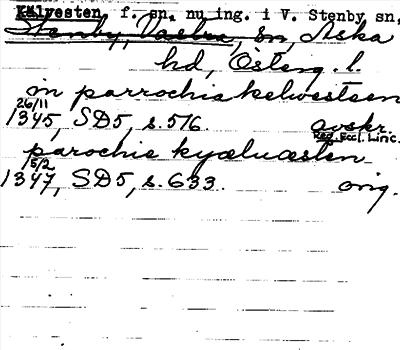 Kälvesten f. sn. nu ing. i V. Stenby sn,
Stenby, Västra, sn, Aska
hd, Österg. l.
in parrochia kelwestsen
26/11
1345, SD5, s. 516. avskr.
Reg. Eccl. Linc.
parochie kyæluæsten
15/2
1347, SD5, s. 633. orig.